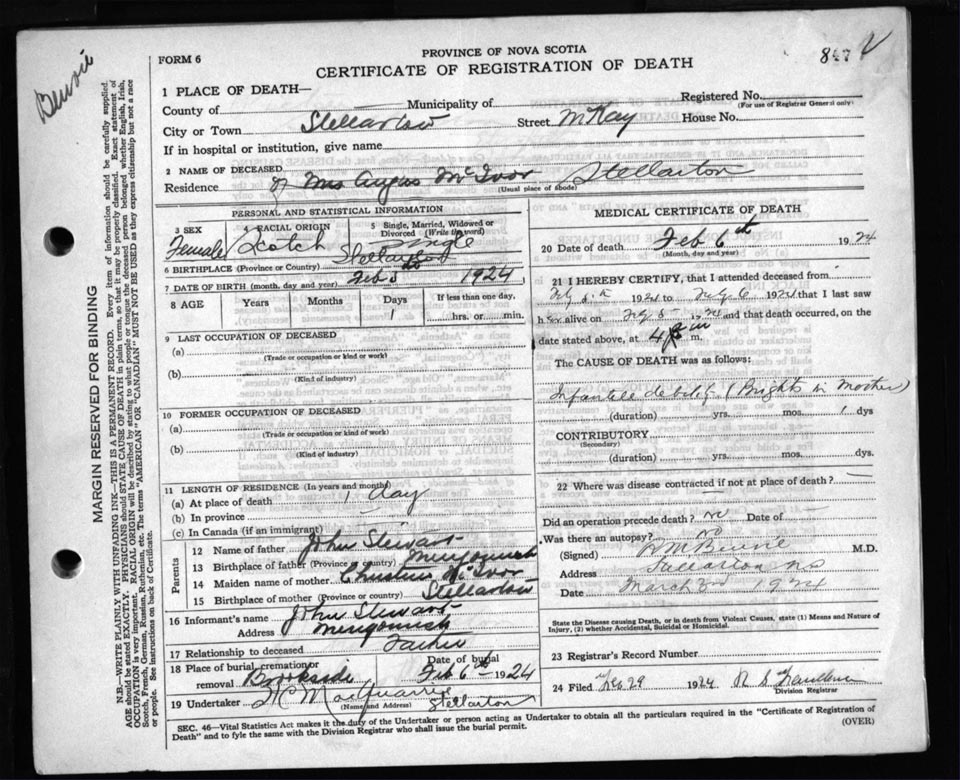 Binnie
FORM 6
PROVINCE OF NOVA SCOTIA
CERTIFICATE OF REGISTRATION OF DEATH
847
1 PLACE OF DEATH—
County of
Municipality of
Registered No.
(For use of Registrar General only)
City or Town Stellarton
Street McKay
House No.
If in hospital or institution, give name
2 NAME OF DECEASED
Residence of Mrs Angus McIvor Stellarton
(Usual place of abode)
PERSONAL AND STATISTICAL INFORMATION
3 SEX
Female
4 RACIAL ORIGIN
Scotch
5 Single, Married, Widowed or
Divorced (Write the word)
Single
6 BIRTHPLACE (Province or Country) Stellarton
7 DATE OF BIRTH (month, day and year) Feb 5th 1924
8 AGE Years Months Days If less than one day,
1 hrs. or min.
9 LAST OCCUPATION OF DECEASED
(a)
(Trade or occupation or kind of work)
(b)
(Kind of industry)
10 FORMER OCCUPATION OF DECEASED
(a)
(Trade or occupation or kind of work)
(b)
(Kind of industry)
11 LENGTH OF RESIDENCE (In years and months)
(a) At place of death 1 day
(b) In province
(c) In Canada (if an immigrant)
Parents
12 Name of father John Stewart
13 Birthplace of father (Province or country) Merigomish
14 Maiden name of mother Christena McIvor
15 Birthplace of mother (Province or country) Stellarton
16 Informant's name John Stewart
Address Merigomish
17 Relationship to deceased Father
18 Place of burial, cremation or
removal Brookside
Date of burial
Feb 6th 1924
19 Undertaker H C MacQuarrie Stellarton
(Name and Address)
MEDICAL CERTIFICATE OF DEATH
20 Date of death Feb 6th 1924
(Month, day and year)
21 I HEREBY CERTIFY, that I attended deceased from
Feby 5th 1924 to Feby 6 1924 that I last saw
her alive on Feby 5 1924 and that death occurred, on
date stated above, at 4 m.
The CAUSE OF DEATH was as follows:
Infantile debility (Brights in Mother)
(duration) yrs. mos. 1 dys
CONTRIBUTORY
(Secondary)
(duration) yrs. mos. dys.
22 Where was disease contracted if not at place of death?
Did an operation precede death? no Date of
Was there an autopsy? no
(Signed) Binnie M.D.
Address Stellarton NS
Date March 3rd 1924
State the Disease causing Death, or in death from Violent Causes, state (1) Means and Nature of
Injury, (2) whether Accidental, Suicidal or Homicidal.
23 Registrar's Record Number
24 Filed Feb 29 1924
Division Registrar
SEC. 46—Vital Statistics Act makes it the duty of the Undertaker or person acting as Undertaker to obtain all the particulars required in the "Certificate of Registration of
Death" and to fyle the same with the Division Registrar who shall issue the burial permit.
(OVER)
MARGIN RESERVED FOR BINDING
N.B.—WRITE PLAINLY WITH UNFADING INK—THIS IS A PERMANENT RECORD. Every item of information should be carefully supplied.
AGE should be stated EXACTLY. PHYSICIANS should STATE CAUSE OF DEATH in plain terms, so that it may be properly classified. Exact statement of
OCCUPATION is very important. RACIAL ORIGIN will be described by stating to what people or tongue the deceased person belonged whether English, Irish,
Scotch, French, German, Russian, Ruthenian, etc. The terms "AMERICAN" or "CANADIAN" MUST NOT BE USED as they express citizenship but not a race
or people. See instructions on back of Certificate.